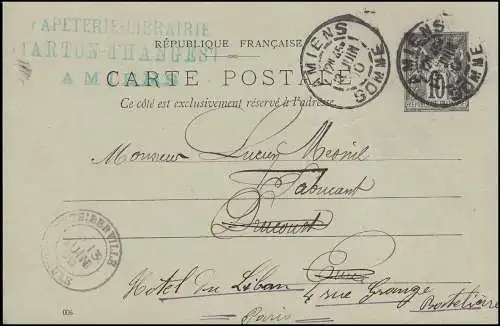 PAPETERIE-LIBRAIRIE
CARTON-d'HANGEST
AMIENS
RÉPUBLIQUE FRANÇAISE
CARTE POSTALE
Ce côté est exclusivement réservé à l'adresse.
AMIENS
SOMME
AMIENS
SOMME
10
Monsieur Lucien Mesnil
Fabricant
Ducourt
THIBERVILLE
13
JUIN
EURE
Eure
Hotel du Liban 4 rue Grange Batelière
Paris
006